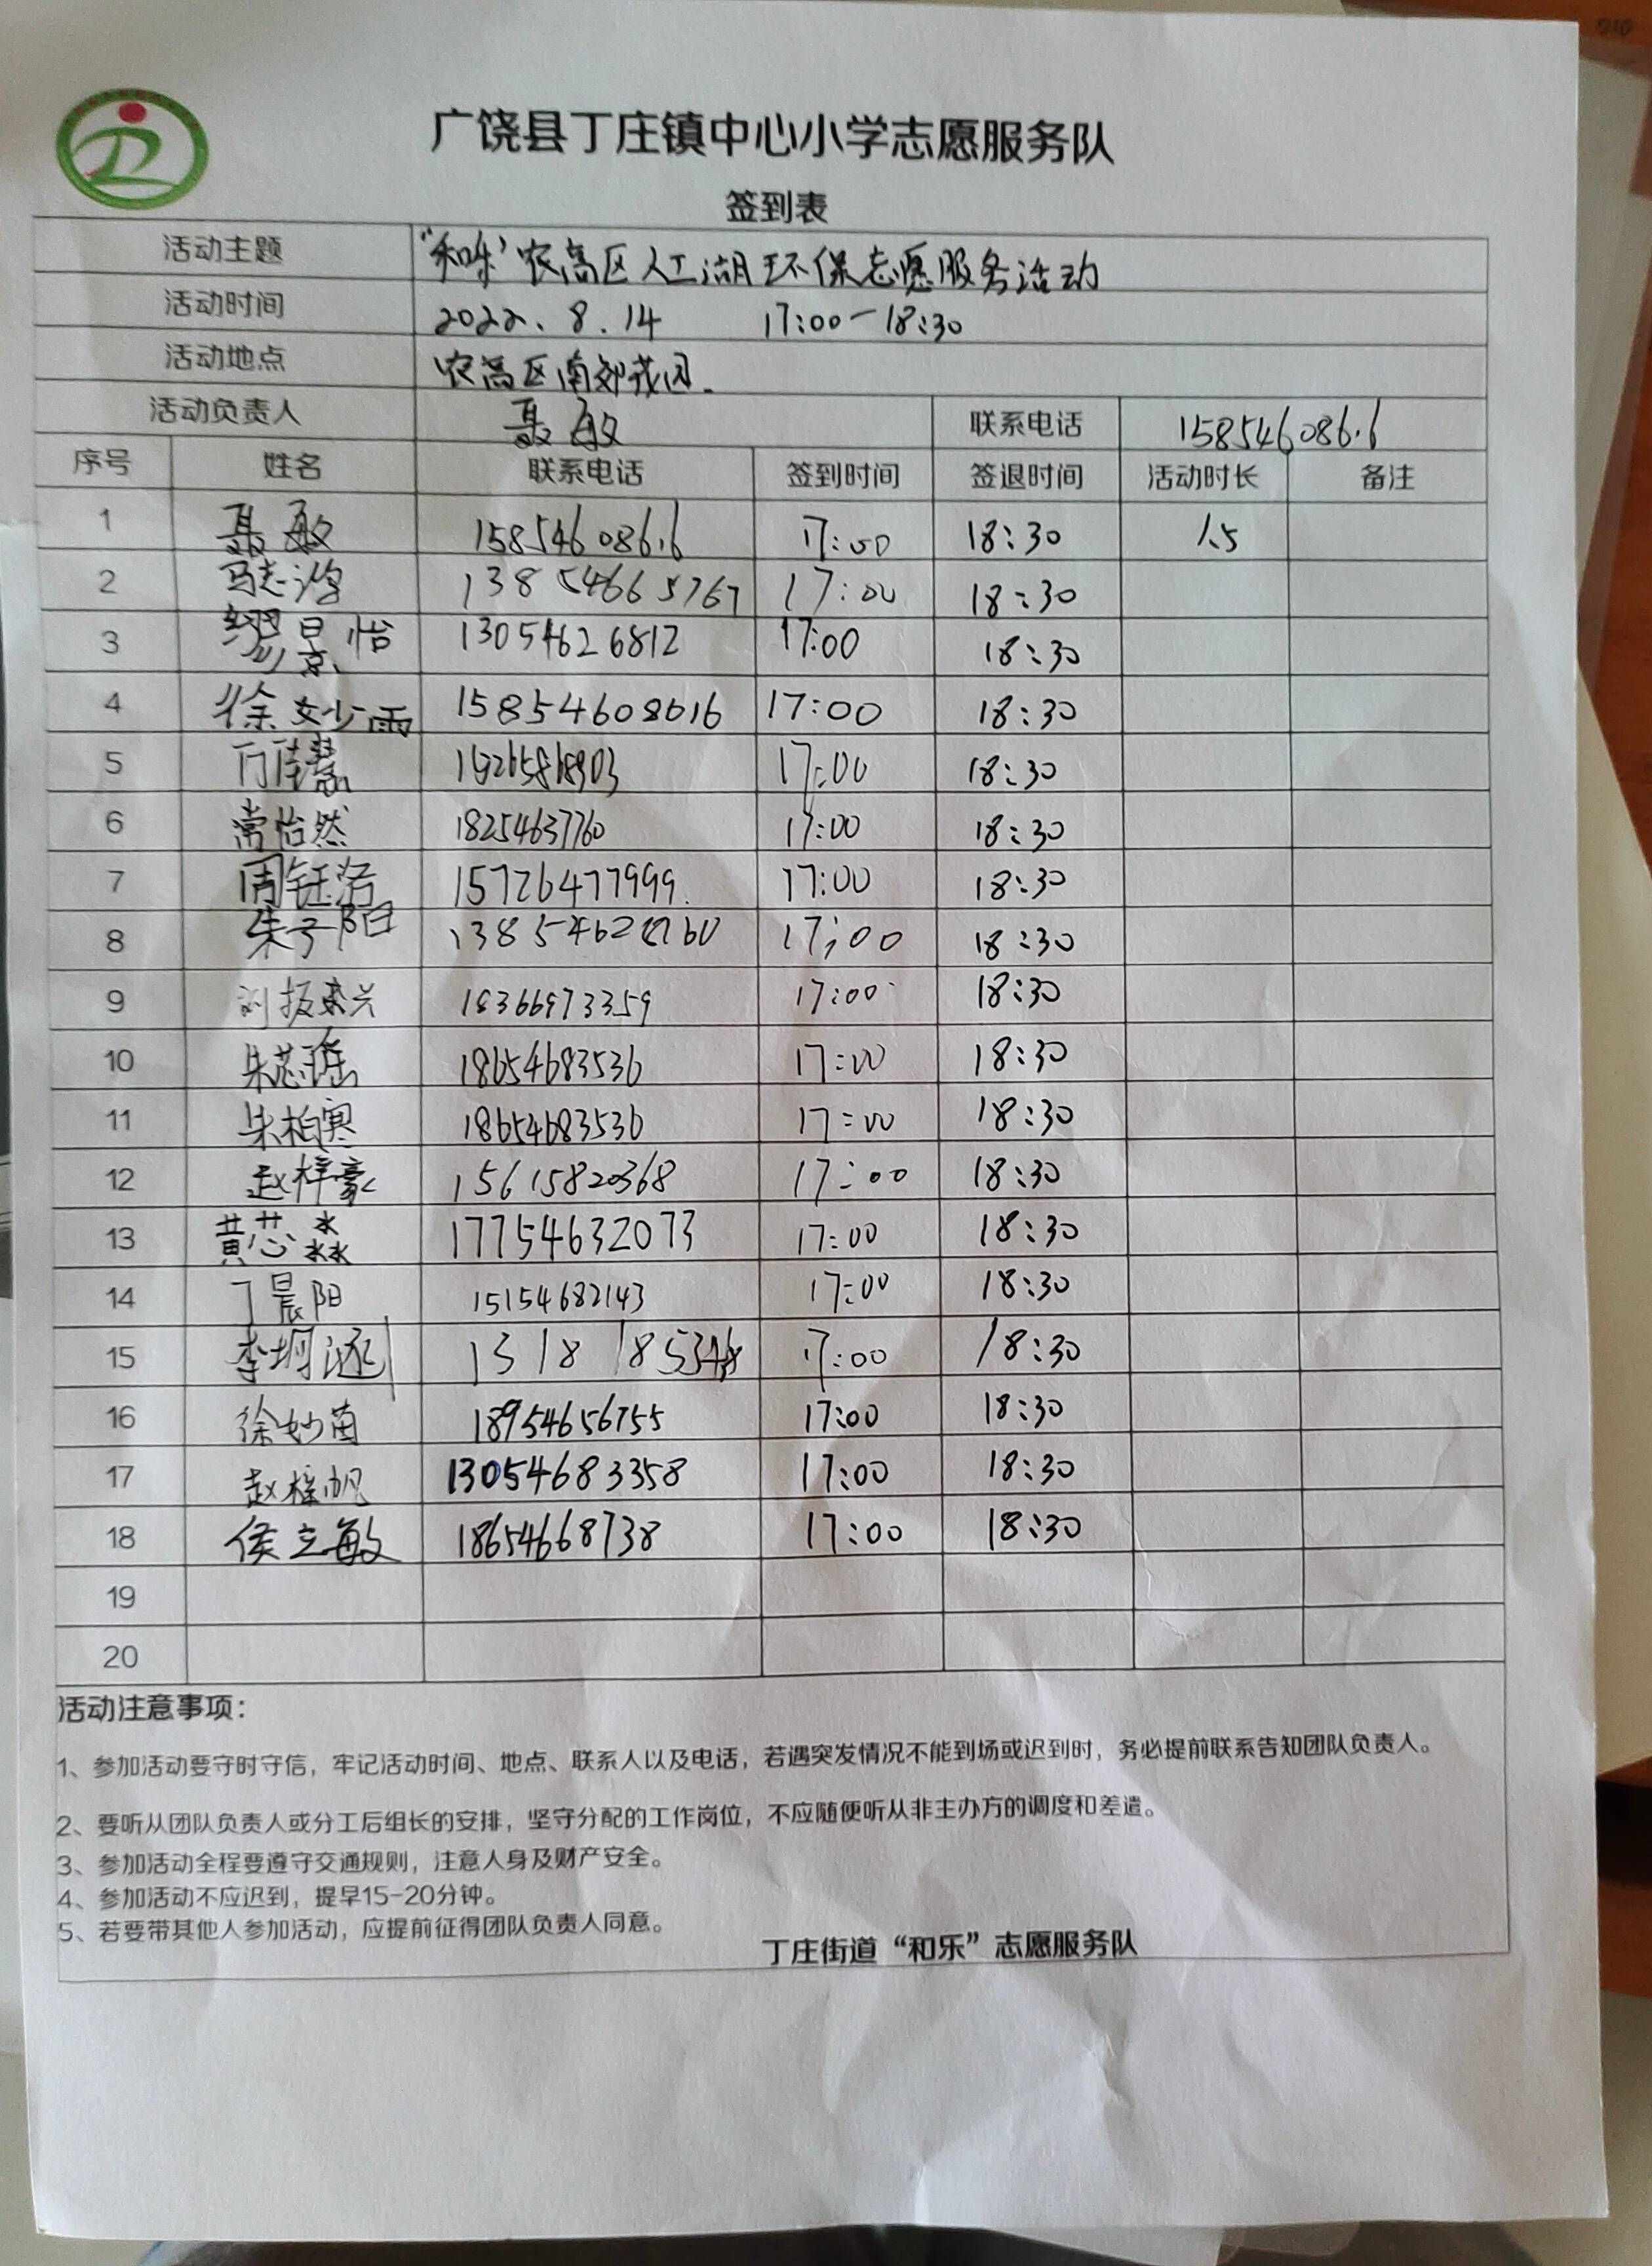 广饶县丁庄镇中心小学志愿服务队
签到表
活动主题 “和乐”农高区人工湖环保志愿服务活动
活动时间 2022.8.14 17:00-18:30
活动地点 农高区南郊花园.
活动负责人 聂敏 联系电话 15854608616
序号 姓名 联系电话 签到时间 签退时间 活动时长 备注
1 聂敏 15854608616 17:00 18:30 1.5
2 13854665767 17:00 18:30
3 缪景怡 13054626812 17:00 18:30
4 徐妙雨 15854608616 17:00 18:30
5 17:00 18:30
6 常怡然 18254637760 17:00 18:30
7 周钰洛 15726477999. 17:00 18:30
8 朱子阳 17:00 18:30
9 刘振兴 18366973359 17:00 18:30
10 朱芯瑶 18654683536 17:00 18:30
11 朱柏寒 18654683536 17:00 18:30
12 赵梓豪 15615820368 17:00 18:30
13 黄芯淼 17754632073 17:00 18:30
14 丁晨阳 15154682143 17:00 18:30
15 李涵 17:00 18:30
16 徐妙苗 18954656755 17:00 18:30
17 赵梓帆 13054683358 17:00 18:30
18 侯立敏 18654668738 17:00 18:30
19
20
活动注意事项：
1、参加活动要守时守信，牢记活动时间、地点、联系人以及电话，若遇突发情况不能到场或迟到时，务必提前联系告知团队负责人。
2、要听从团队负责人或分工后组长的安排，坚守分配的工作岗位，不应随便听从非主办方的调度和差遣。
3、参加活动全程要遵守交通规则，注意人身及财产安全。
4、参加活动不应迟到，提早15-20分钟。
5、若要带其他人参加活动，应提前征得团队负责人同意。
丁庄街道“和乐”志愿服务队